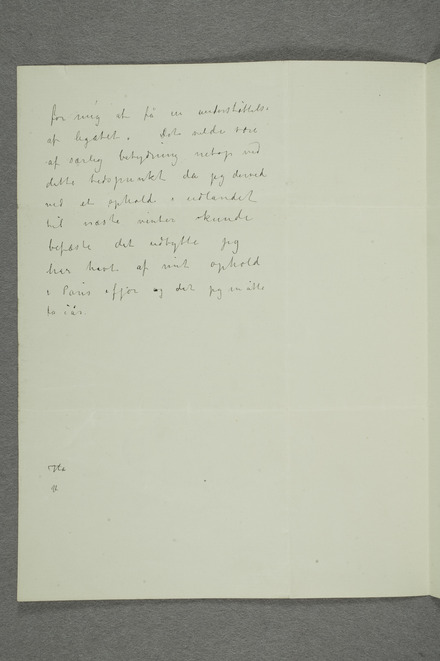 for mig at få en understøttelse
af legatet. Det vilde være
af særlig betydning netop ved
dette tidspunkt da jeg derved
ved et ophold i udlandet
til næste vinter kunde
befæste det udbytte jeg
har havt af mit ophold
i Paris ifjor og det jeg måtte
i år.